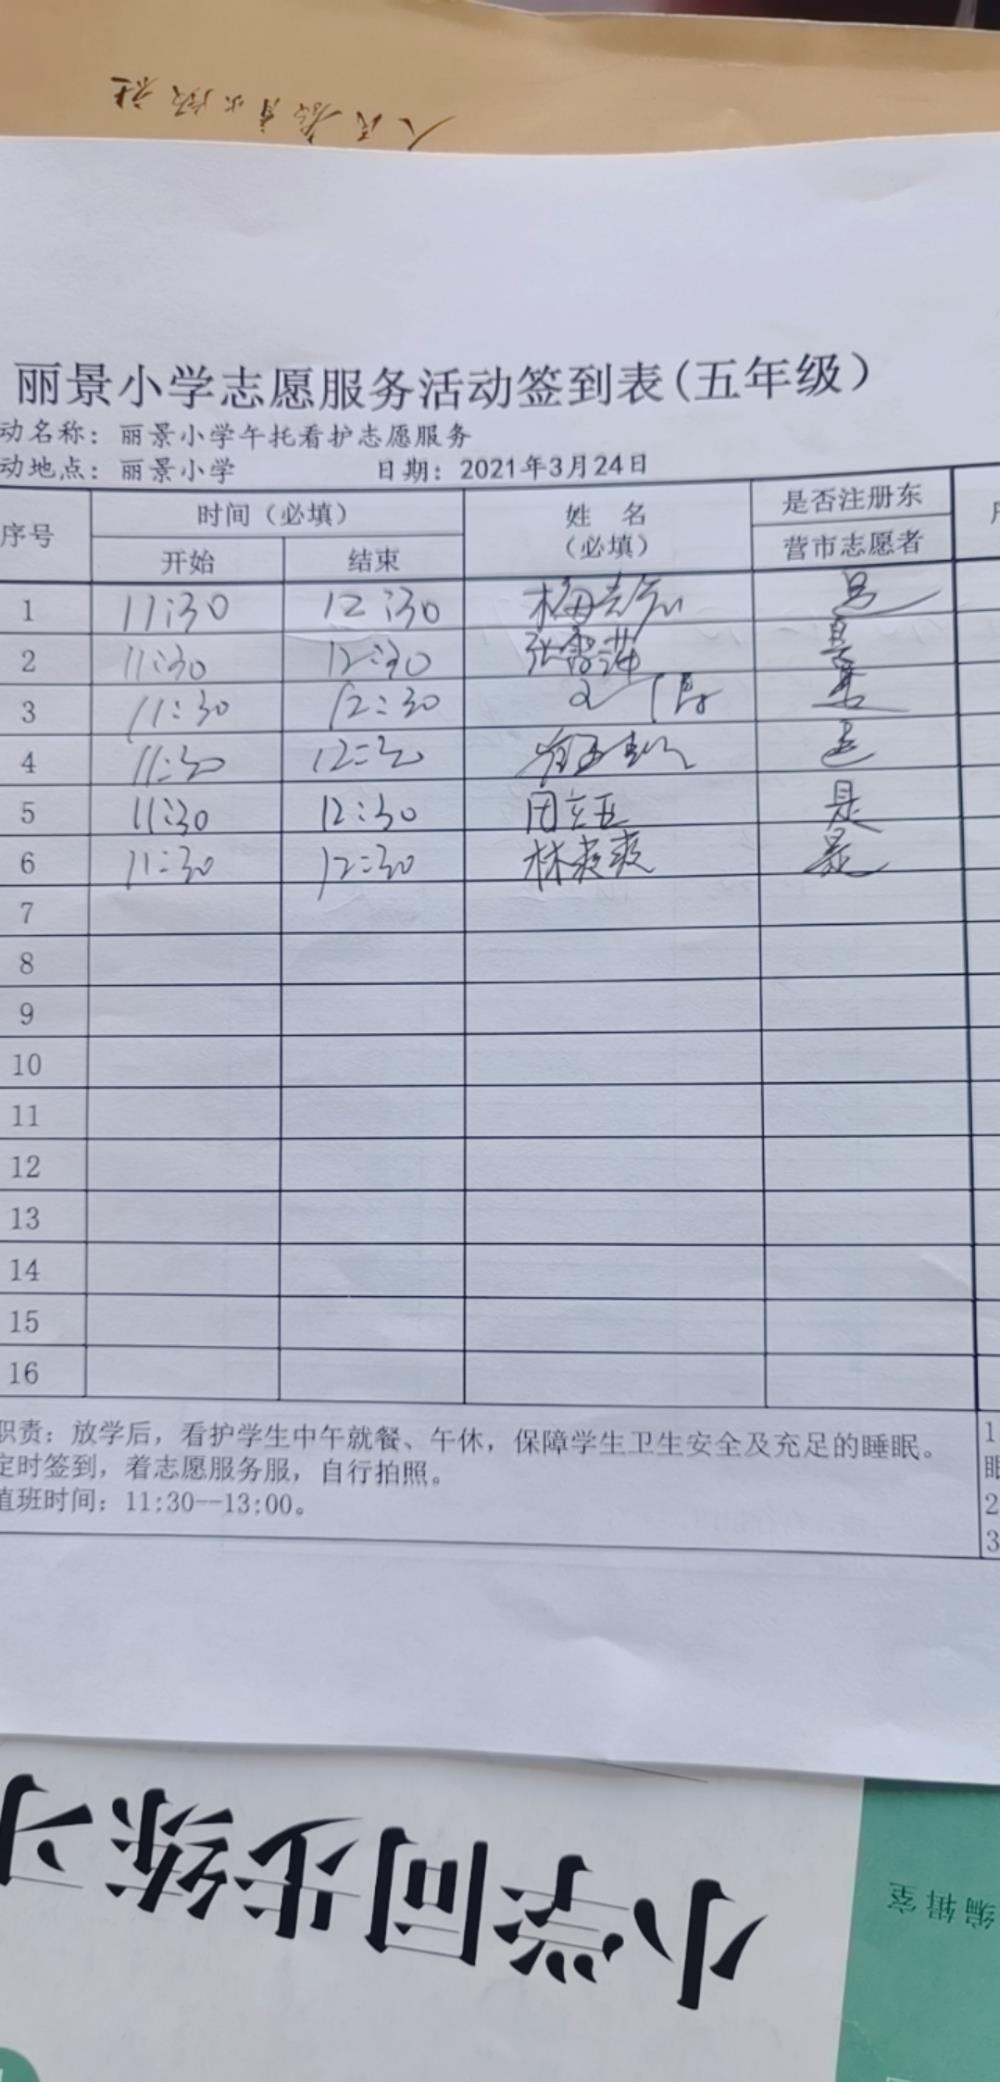 人民教育出版社
丽景小学志愿服务活动签到表(五年级)
动名称：丽景小学午托看护志愿服务
动地点：丽景小学 日期：2021年3月24日
序号 时间（必填） 姓 名（必填） 是否注册东营市志愿者
开始 结束
1 11:30 12:30 是
2 11:30 12:30 张雪萍 是
3 11:30 12:30 是
4 11:30 12:30 是
5 11:30 12:30 是
6 11:30 12:30 林爽爽 是
7
8
9
10
11
12
13
14
15
16
职责：放学后，看护学生中午就餐、午休，保障学生卫生安全及充足的睡眠。
定时签到，着志愿服务服，自行拍照。
值班时间：11:30--13:00。
1
眠
2
3
小学同步练习
编辑室